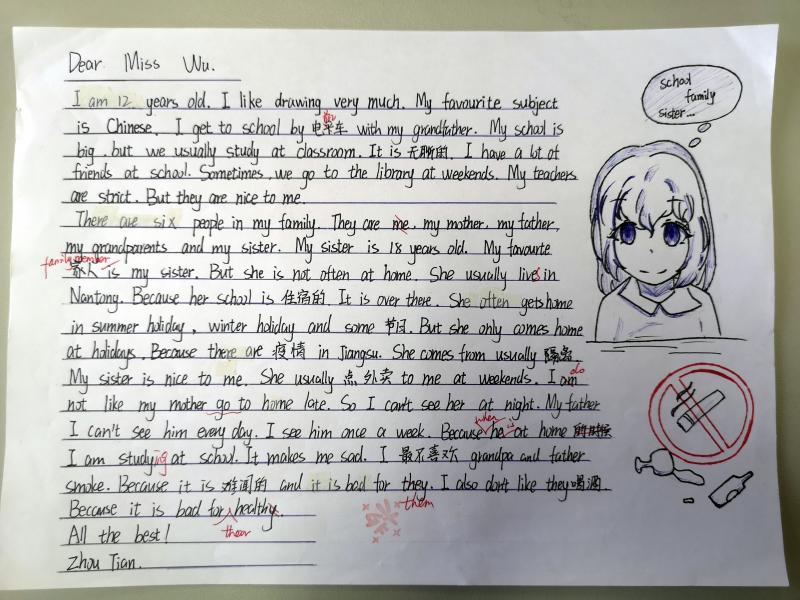 Dear Miss Wu.
I am 12 years old. I like drawing very much. My favourite subject
is Chinese. I get to school by 电瓶车 with my grandfather. My school is
big, but we usually study at classroom. It is 无聊的. I have a lot of
friends at school. Sometimes, we go to the library at weekends. My teachers
are strict. But they are nice to me.
There are six people in my family. They are me, my mother, my father,
my grandparents and my sister. My sister is 18 years old. My favourte
family member
家人 is my sister. But she is not often at home. She usually lives in
Nantong. Because her school is 住宿的. It is over there. She often gets home
in summer holiday, winter holiday and some 节日. But she only comes home
at holidays. Because there are 疫情 in Jiangsu. She comes from usually 隔离.
My sister is nice to me. She usually 点外卖 to me at weekends. I am do
not like my mother go to home late. So I can't see her at night. My father
I can't see him every day. I see him once a week. Because when he is at home
I am studying at school. It makes me sad. I 最不喜欢 grandpa and father
smoke. Because it is 难闻的 and it is bad for they. I also don't like they 喝酒.
them
Because it is bad for healthy.
their
All the best!
Zhou Tian.
school
family
sister...